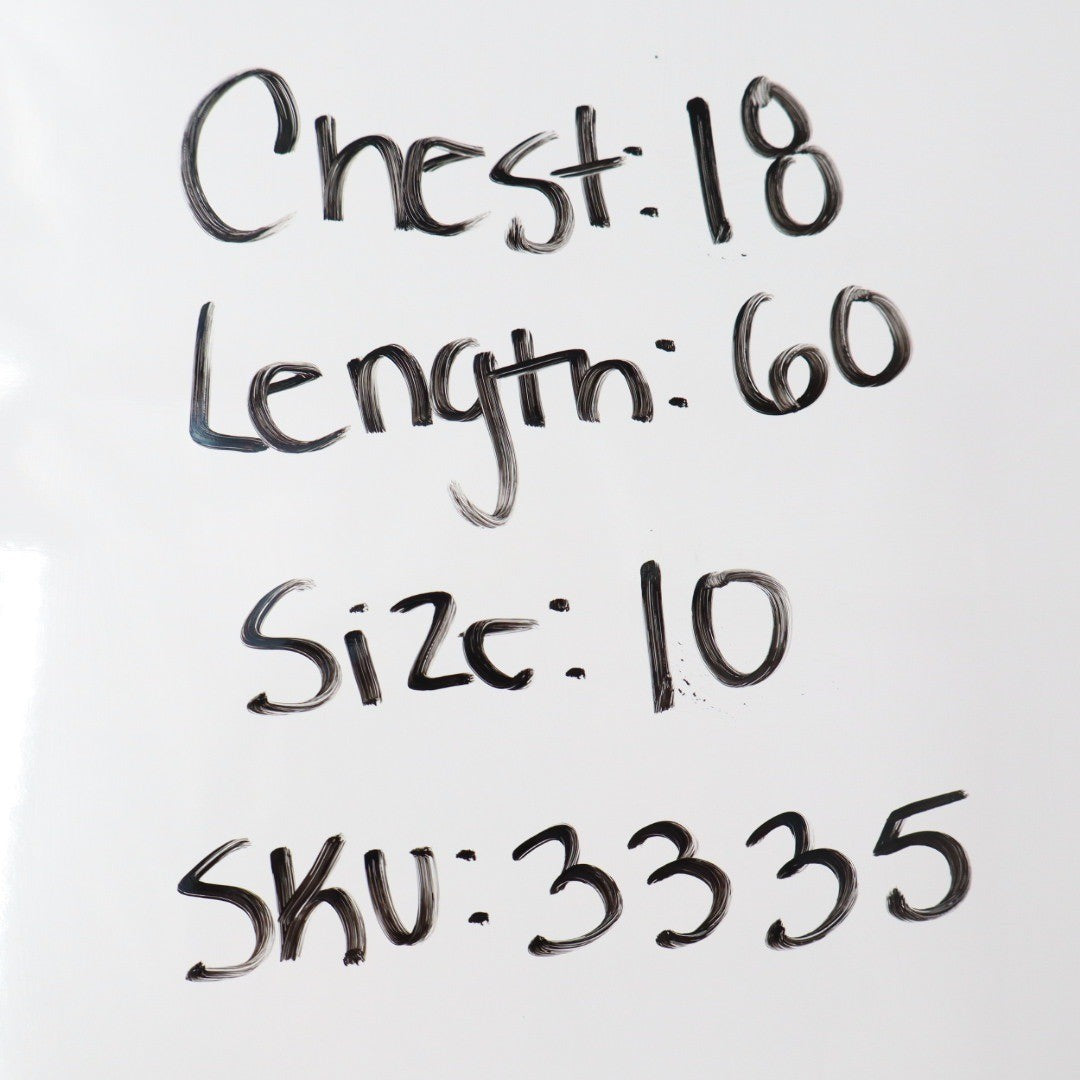 Chest: 18
Length: 60
Size: 10
SKU: 3335